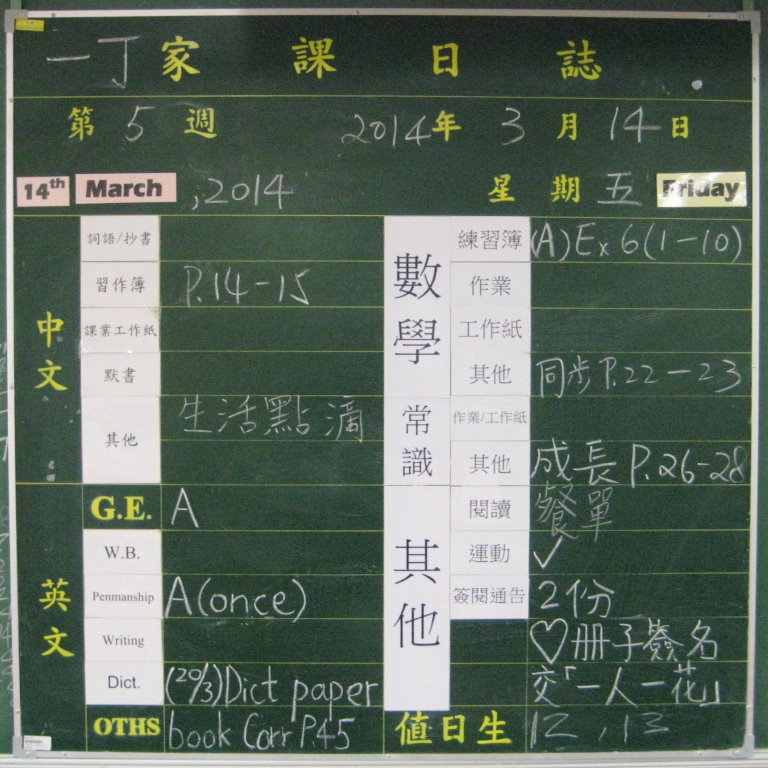 一丁家課日誌
第5週 2014年3月14日
14th March ,2014 星期五 Friday
中文
詞語/抄書
習作簿 P.14-15
課業工作紙
默書
其他 生活點滴
英文
G.E. A
W.B.
Penmanship A(once)
Writing
Dict. (20/3)Dict paper
OTHS book Corr P.45
數學
練習簿 (A)Ex 6(1-10)
作業
工作紙
其他 同步P.22-23
常識
作業/工作紙
其他 成長 P.26-28
其他
閱讀 餐單
運動 ✓
簽閱通告 2份
♡冊子簽名
交「一人一花」
值日生 12,13